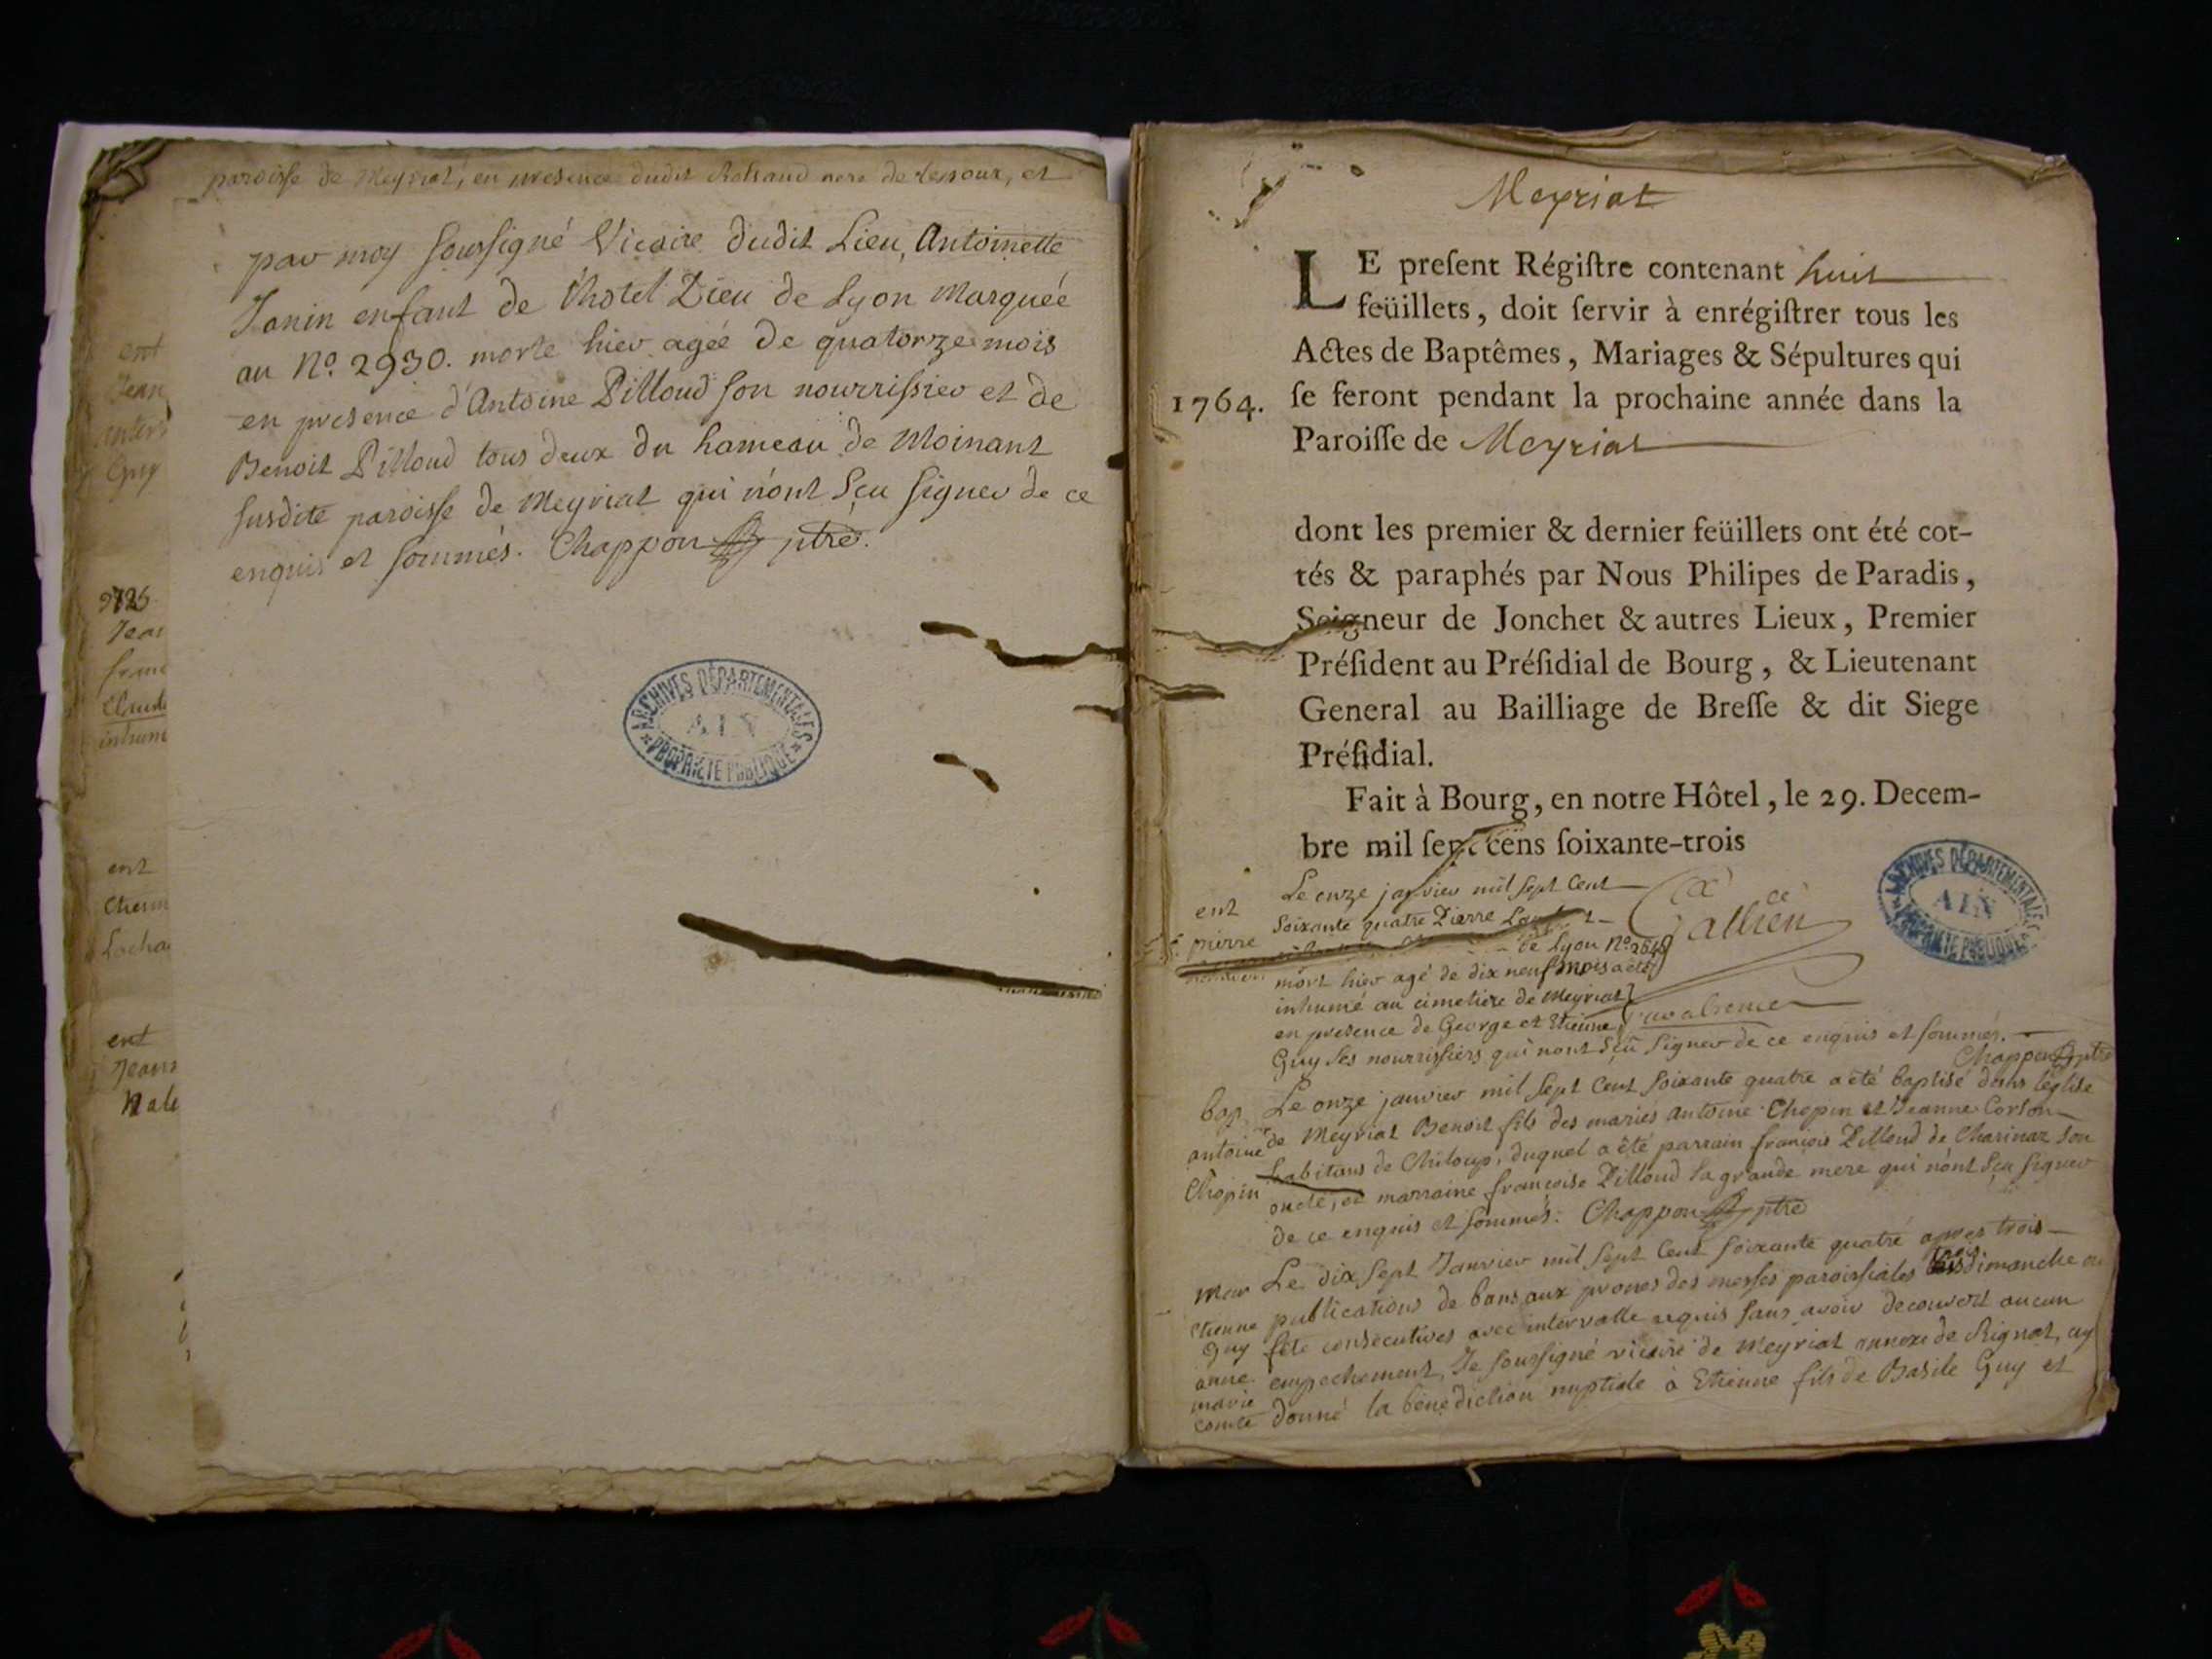 paroisse de Meyriat, en presence dudit pere de et
par moy soussigné Vicaire dudit Lieu, Antoinette
Janin enfant de l'hotel Dieu de Lyon Marquée
au No. 2930. morte hier agée de quatorze mois
en presence d'Antoine Pilloud son nourrissier et de
Benoit Pilloud tous deux du hameau de Moinant
susdite paroisse de Meyriat qui n'ont sçu signer de ce
enquis et sommés. Chappon ptre.
ent
Jean
Guy
Jean
Claude
inhum
ent
ent
Jean
ARCHIVES DÉPARTEMENTALES
AIN
PROPRIÉTÉ PUBLIQUE
Meyriat
LE present Régistre contenant huit
feüillets, doit servir à enrégistrer tous les
Actes de Baptêmes, Mariages & Sépultures qui
1764. se feront pendant la prochaine année dans la
Paroisse de Meyriat
dont les premier & dernier feüillets ont été cot-
tés & paraphés par Nous Philipes de Paradis,
Seigneur de Jonchet & autres Lieux, Premier
Président au Présidial de Bourg, & Lieutenant
General au Bailliage de Bresse & dit Siege
Présidial.
Fait à Bourg, en notre Hôtel, le 29. Decem-
bre mil sept cens soixante-trois
ARCHIVES DÉPARTEMENTALES
AIN
PROPRIÉTÉ PUBLIQUE
ent
pierre
Le onze janvier mil sept cent
soixante quatre Pierre
de Lyon No.
mort hier agé de dix neuf mois a été
inhumé au cimetiere de Meyriat
en presence de George et Etienne
Guy ses nourrissiers qui n'ont sçû signer de ce enquis et sommés.
Chappon ptre
bap
antoine
Chopin
Le onze janvier mil sept cent soixante quatre a été baptisé dans l'église
de Meyriat Benoit fils des mariés antoine Chopin et Jeanne Corton
habitans de Chiloup, duquel a été parrain françois Pilloud de Charinaz son
oncle, et marraine françoise Pilloud sa grande mere qui n'ont sçu signer
de ce enquis et sommés. Chappon ptre
mar
Etienne
Guy
anne
marie
comte
Le dix sept Janvier mil sept cent soixante quatre apres trois
publications de bans aux prones des messes paroissiales trois dimanche ou
fête consécutives avec intervalle requis sans avoir decouvert aucun
empechement, Je soussigné vicaire de Meyriat annexe de Rignat, ay
donné la bénédiction nuptiale à Etienne fils de Basile Guy et